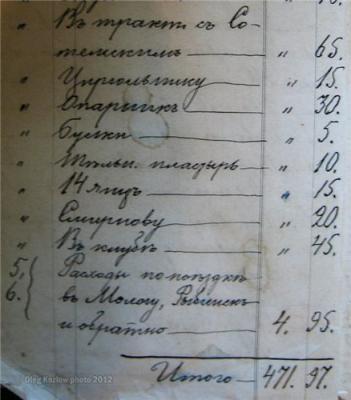 " Въ тракт. съ Со-
телскимъ — " 65.
" Цирюльнику — " 15.
" Опарышъ — " 30.
" Булки — " 5.
" пластырь — " 10.
" 14 яицъ — " 15.
" Смирнову — " 20.
" Въ клубѣ — " 45.
5. Расходы по поѣздкѣ
6. въ Мологу, Рыбинскъ
и обратно — 4. 95.
Итого — 471. 97.
Oleg Kozlow photo 2012